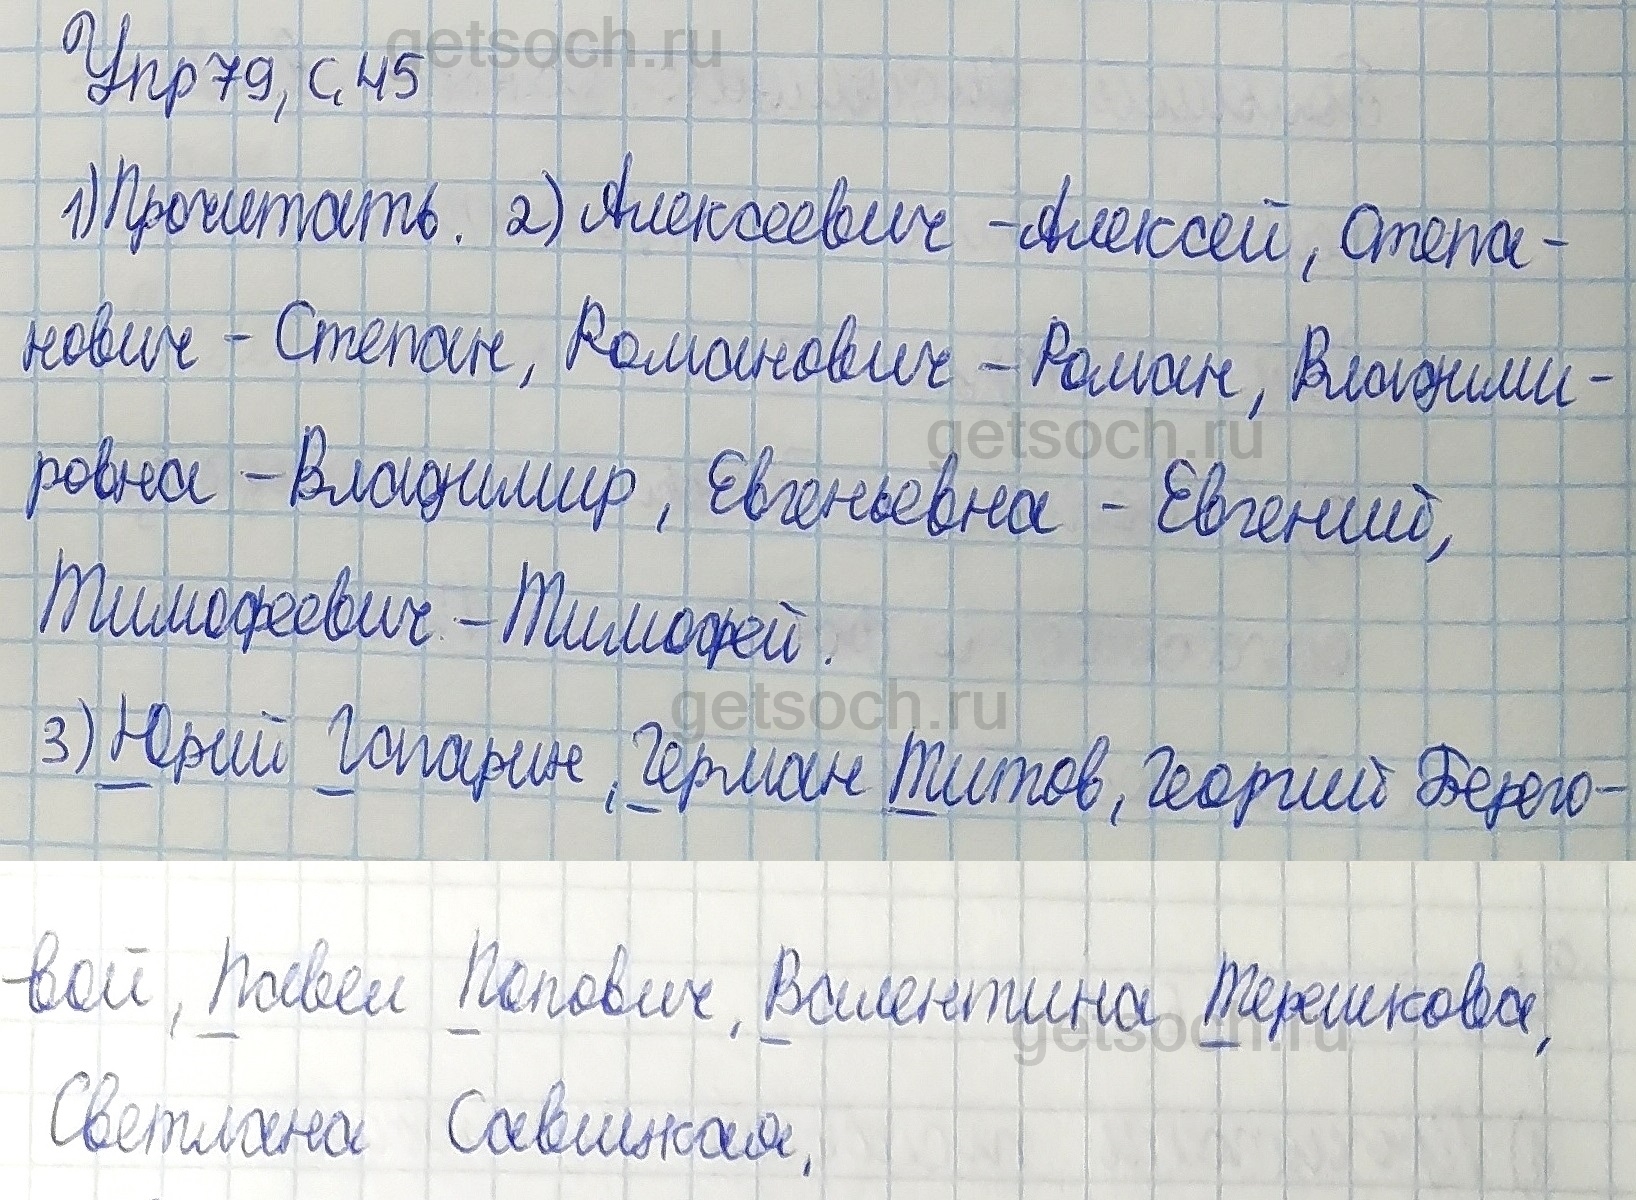 getsoch.ru
Упр 79, с. 45
1) Прочитать. 2) Алексеевич – Алексей, Степа-
нович – Степан, Романович – Роман, Владими-
getsoch.ru
ровна – Владимир, Евгеньевна – Евгений,
Тимофеевич – Тимофей.
getsoch.ru
3) Юрий Гагарин, Герман Титов, Георгий Берего-
вой, Павел Попович, Валентина Терешкова,
getsoch.ru
Светлана Савицкая,